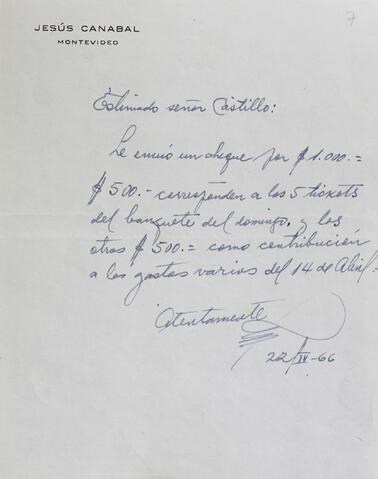 7
JESÚS CANABAL
MONTEVIDEO
Estimado señor Castillo:
Le envío un cheque por $ 1.000.=
$ 500.- corresponden a los 5 tickets
del banquete del domingo, y los
otros $ 500.= como contribución
a los gastos varios del 14 de Abril.-
Atentamente
22/IV-66